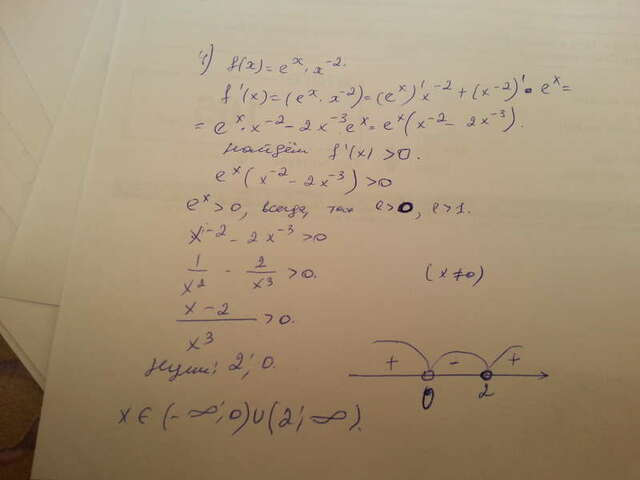 4) f(x) = e^x · x^-2.
f'(x) = (e^x · x^-2) = (e^x)' x^-2 + (x^-2)' · e^x =
= e^x · x^-2 - 2x^-3 e^x = e^x (x^-2 - 2x^-3).
Найдём f'(x) > 0.
e^x (x^-2 - 2x^-3) > 0
e^x > 0, всегда, т.к. e > 0, e > 1.
x^-2 - 2x^-3 > 0
1/x^2 - 2/x^3 > 0. (x ≠ 0)
(x - 2)/x^3 > 0.
Нули: 2; 0.
+ - +
0 2
x ∈ (-∞; 0) ∪ (2; ∞).